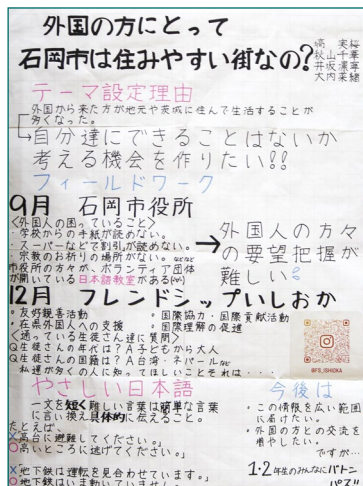 外国の方にとって
石岡市は住みやすい街なの?
秋山千華
テーマ設定理由
外国から来た方が地元や茨城に住んで生活することが
多くなった。
→自分達にできることはないか
考える機会を作りたい!!
フィールドワーク
9月 石岡市役所
<外国人の困っていること>
・学校からの手紙が読めない。
・スーパーなどで割引が読めない。
・宗教のお祈りの場所がない。などなど
市役所の方々が、ボランティア団体
が開いている日本語教室がある
→外国人の方々
の要望把握が
難しい
12月 フレンドシップいしおか
・友好親善活動
・国際協力・国際貢献活動
・在県外国人への支援
・国際理解の促進
<通っている生徒さん達に質問>
Q生徒さんの年代は?A子どもから大人
Q生徒さんの国籍は?A台湾・ネパールなど
私達が多くの人に知ってほしいことそれは・・・
やさしい日本語
一文を短く難しい言葉は簡単な言葉
に言い換え具体的に伝えること。
たとえば、
×「高台に避難してください。」
○「高いところに逃げてください。」
×「地下鉄は運転を見合わせています。」
○「地下鉄はいま動いていません。」
@FS_ISHIOKA
今後は
・この情報を広い範囲
に届けたい。
・外国の方との交流を
増やしたい。
ですが…
1・2年生のみんなにバトン
パス!!